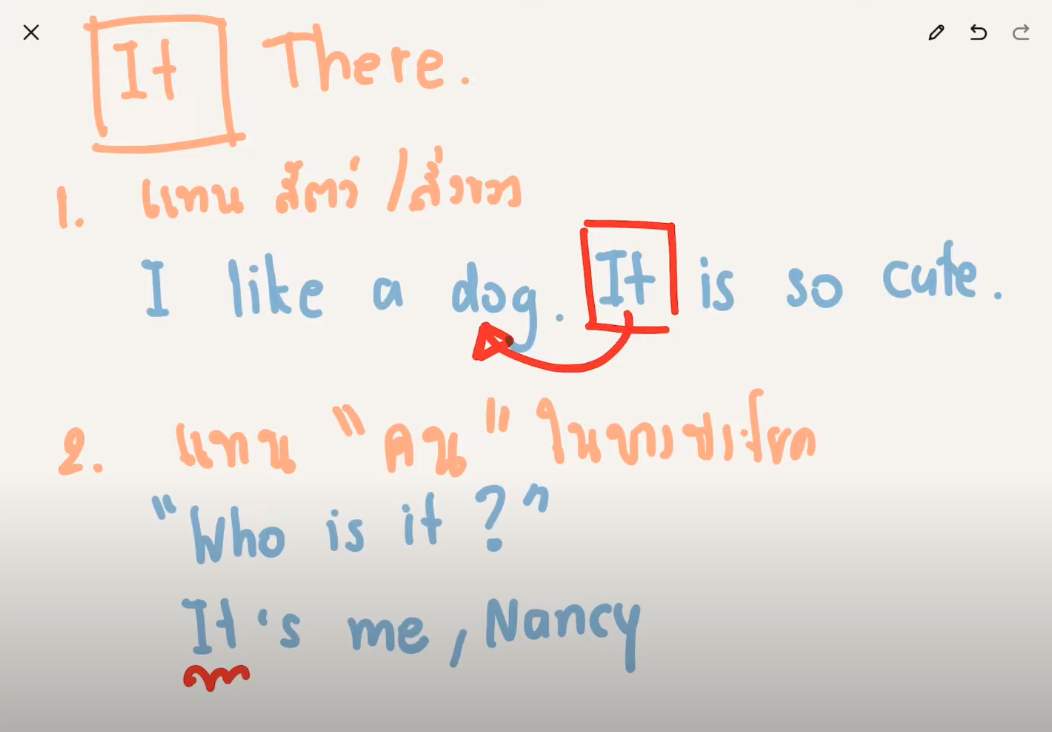 It There.
1. แทน สัตว์ / สิ่งของ
I like a dog. It is so cute.
2. แทน "คน" ในบางประโยค
"Who is it?"
It's me, Nancy